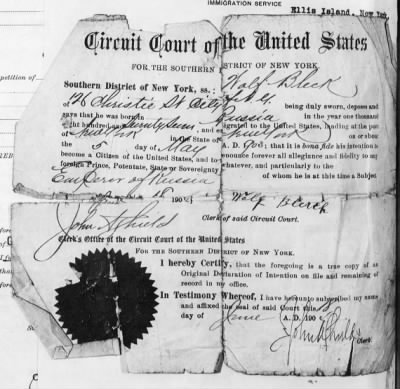 IMMIGRATION SERVICE
Ellis Island, New York,
Circuit Court of the United States
FOR THE SOUTHERN DISTRICT OF NEW YORK.
Southern District of New York, ss.: Wolf Bleck
of 126 Christie St City being duly sworn, deposes and
says that he was born Russia in the year one thousand
eight hundred and and emigrated to the United States, landing at the port
of New York in the State of New York on or about
the 5 day of May A. D. that it is bona fide his intention to
become a Citizen of the United States, and to renounce forever all allegiance and fidelity to any
foreign Prince, Potentate, State or Sovereignty whatever, and particularly to the
Emperor of Russia of whom he is at this time a Subject
16 190 Wolf Bleck
John A Shields Clerk of said Circuit Court.
Clerk's Office of the Circuit Court of the United States
FOR THE SOUTHERN DISTRICT OF NEW YORK.
I hereby Certify, that the foregoing is a true copy of
Original Declaration of Intention on file and remaining of
record in my office.
In Testimony Whereof, I have hereunto subscribed my name
and affixed the seal of said Court this
day of June A. D. 190
John A Shields
Clerk.
petition of